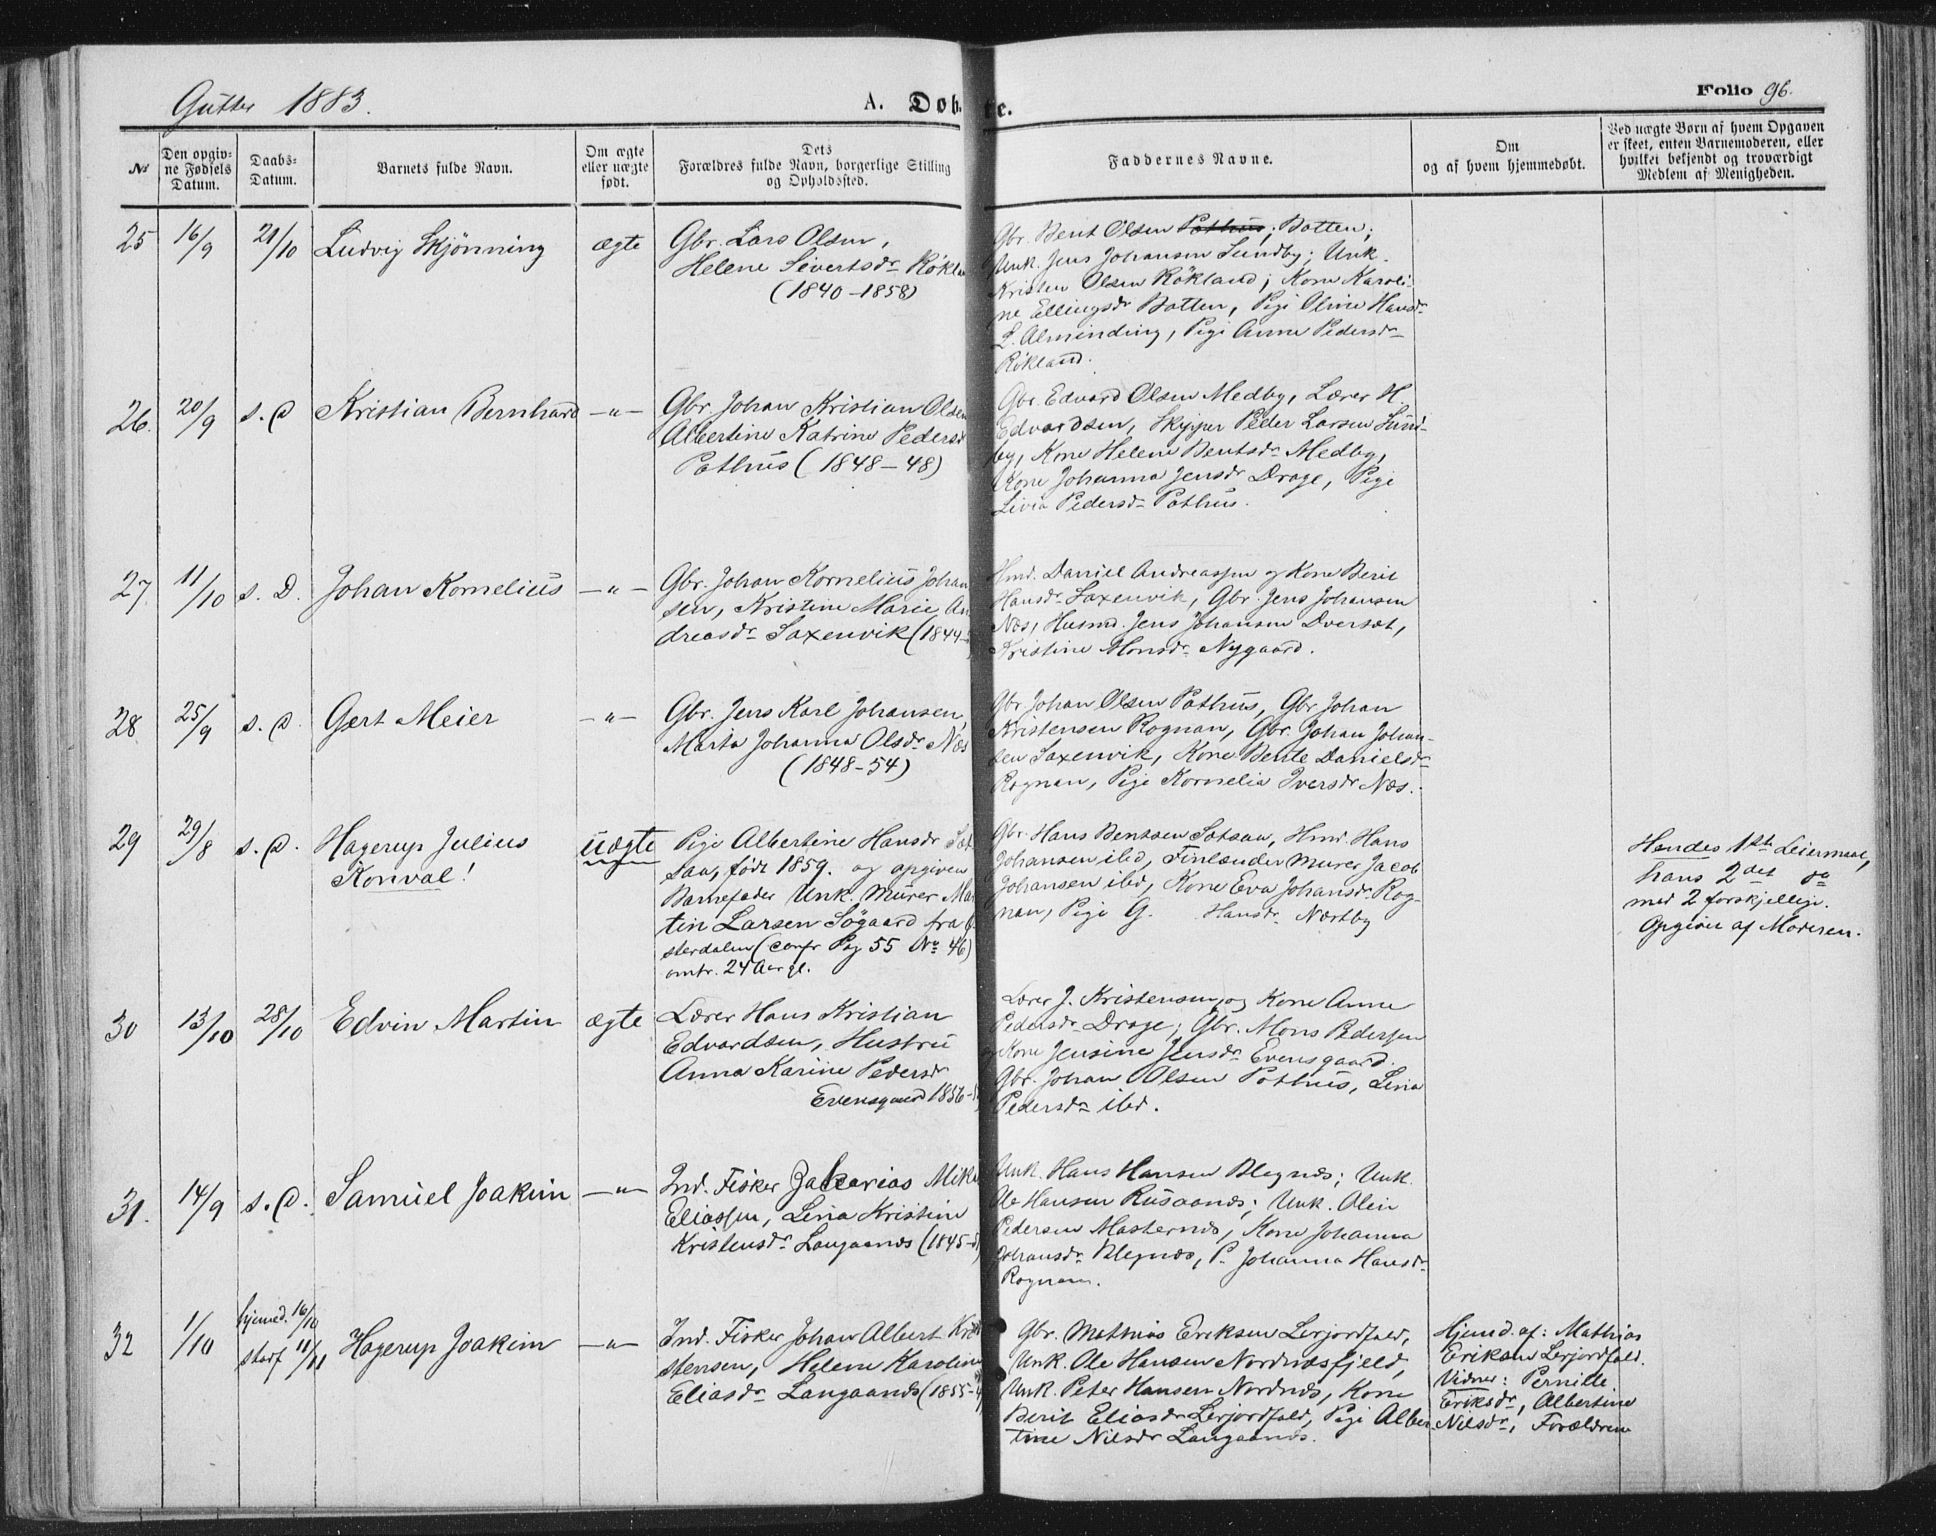 Gutter 1883.
A. Døb
te.
Folio 96.
No
Den opgiv-
ne Fødsels
Datum.
Daabs-
Datum.
Barnets fulde Navn.
Om ægte
eller uægte
født.
Dets
Forældres fulde Navn, borgerlige Stilling
og Opholdssted.
Faddernes Navne.
Om
og af hvem hjemmedøbt.
Ved uægte Børn af hvem Opgaven
er skeet, enten Barnemoderen, eller
hvilket bekjendt og troværdigt
Medlem af Menigheden.
25 16/9 21/10 Ludvig Skjönning ægte
Gbr. Lars Olsen,
Helene Sivertsdr Rökla
(1840-1858)
Gbr. Berit Olsen Pothus; Botten;
Unk. Jens Johansen Sundby; Unk.
Kristen Olsen Rökland; Kone Karoli-
ne Ellingsdr Botten, Pige Oline Hansdr
L. Alminding, Pige Anne Pedersdr
Rökland.
26. 20/9 s. D Kristian Bernhard -"-
Gbr. Johan Kristian Olsen
Albertine Katrine Pedersd
Pothus (1848-48)
Gbr. Edvard Olsen Medby, Lærer H.
Edvardsen, Skypper Peder Larsen Sund-
by, Kone Helene Bentsdr Medby,
Kone Johanna Jensdr Drage, Pige
Livia Pedersdr Pothus.
27 11/10 s. D. Johan Kornelius -"-
Gbr. Johan Kornelius Johan
sen, Kristine Marie An
dreasdr Saxenvik (1844-
Hmd. Daniel Andreassen og Kone Berit
Hansdr Saxenvik, Gbr. Jens Johansen
Næs, Husmd. Jens Johansen Dverset,
Kristine Monsdr Nygaard.
28 25/9 s. D. Gert Meier -"-
Gbr. Jens Karl Johansen,
Marta Johanna Olsdr Næs
(1848-54)
Gbr Johan Olsen Pothus, Gbr Johan
Kristensen Rognan, Gbr. Johan Johan-
sen Saxenvik, Kone Bente Danielsdr
Rognan, Pige Kornelia Iversdr Næs.
29 29/8 s. D. Hagerup Julius
Konval! uægte
Pige Albertine Hansdr Sot
saa, født 1859. og opgiven
Barnefader Unk. Murer Mar
tin Larsen Sögaard fra
sterdalen (confr Pag 55 No 46)
omtr. 24 Aar gl.
Gbr. Hans Bentsen Sotsaa, Hmd. Hans
Johansen ibd, Finlænder Murer Jacob
Johansen ibd, Kone Eva Johansdr Rog-
nan, Pige G. Hansdr Næstby
Hendes 1ste Leiermaal,
hans 2det do
med 2 forskjellige.
Opgiven af Moderen.
30 13/10 28/10 Edvin Martin ægte
Lærer Hans Kristian
Edvardsen, Hustru
Anna Karine Pedersdr
Evensgaard 1856-
Lærer J. Kristensen og Kone Anne
Pedersdr Drage; Gbr. Mons Pedersen
og Kone Jensine Jensdr Evensgaard.
Gbr. Johan Olsen Pothus, Lina
Pedersdr ibd.
31. 14/9 s. D. Samuel Joakim -"-
Ind. Fisker Zakarias Mik
Eliassen, Lena Kristine
Kristensdr Langaanes (1845-
Unk. Hans Hansen Blegnæs; Unk.
Ole Hansen Rusaanes; Unk. Olein
Pedersen Masternes, Kone Johanna
Johansdr Blegnæs, P. Johanna Hansdr
Rognan.
32 1/10 hjemd. 16/10
staf 11/11 Hagerup Joakim -"-
Ind. Fisker Johan Albert Kri
stensen, Helene Karoline
Eliasdr Langaanes (1855-
Gbr. Mathias Eriksen Lerjordfald,
Unk. Ole Hansen Nordnæsfjeld,
Unk. Peter Hansen Nordnæs, Kone
Berit Eliasdr Lerjordfald, Pige Alber
tine Nilsdr Langaanes.
Hjemd. af: Mathias
Eriksen Lerjordfald.
Vidner: Pernille
Eriksdr, Albertine
Nilsdr, Forældrene